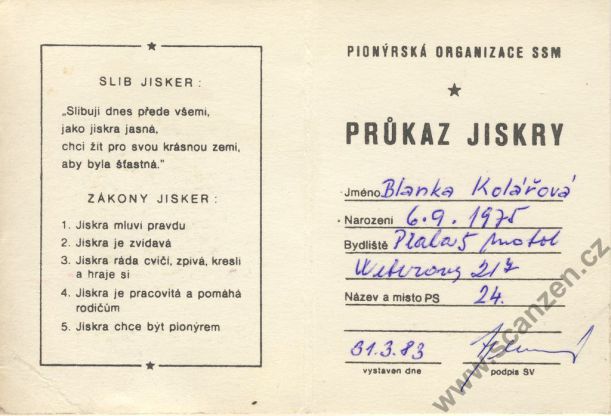 SLIB JISKER :
„Slibuji dnes přede všemi,
jako jiskra jasná,
chci žít pro svou krásnou zemi,
aby byla šťastná.”
ZÁKONY JISKER :
1. Jiskra mluví pravdu
2. Jiskra je zvídavá
3. Jiskra ráda cvičí, zpívá, kreslí
a hraje si
4. Jiskra je pracovitá a pomáhá
rodičům
5. Jiskra chce být pionýrem
PIONÝRSKÁ ORGANIZACE SSM
PRŮKAZ JISKRY
Jméno Blanka Kolářová
Narození 6.9.1975
Bydliště Praha 5 Motol
217
Název a místo PS 24.
31.3.83
vystaven dne
podpis SV
www.scanzen.cz